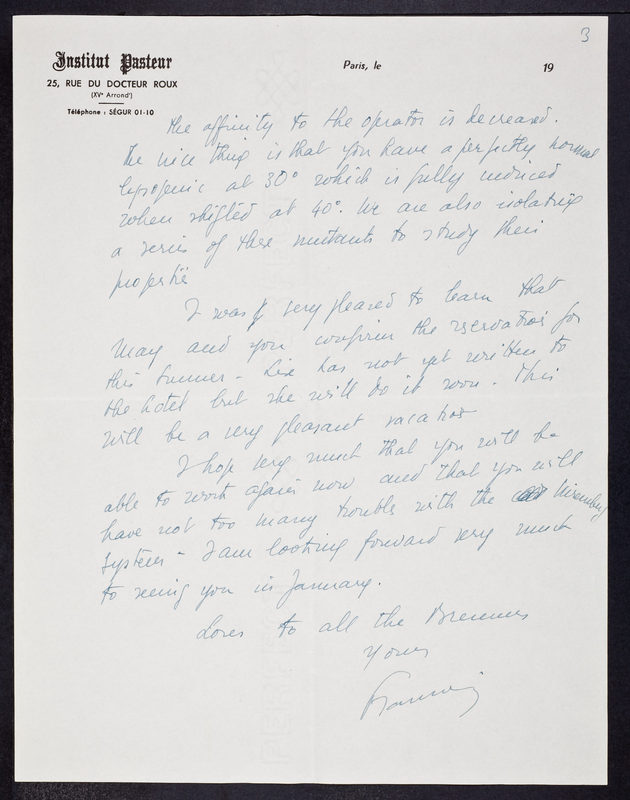 3
Institut Pasteur
25, RUE DU DOCTEUR ROUX
(XVe Arrondt)
Téléphone : SÉGUR 01-10
Paris, le 19
the affinity to the operator is decreased.
The nice thing is that you have a perfectly normal
lysogenic at 30° which is fully induced
when shifted at 40°. We are also isolating
a series of these mutants to study their
I was very pleased to learn that
May and you confirm the reservations for
this summer - Lise has not yet written to
the hotel but she will do it soon. This
will be a very pleasant vacation
I hope very much that you will be
able to work again now and that you will
have not too many trouble with the
system - I am looking forward very much
to seeing you in January.
Loves to all the Brenners
Yours
François